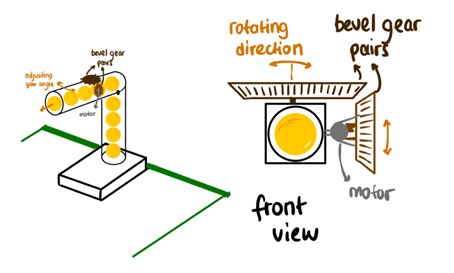 bevel gear
pairs
adjusting
yaw angle
motor
rotating
direction
bevel gear
pairs
motor
front
view